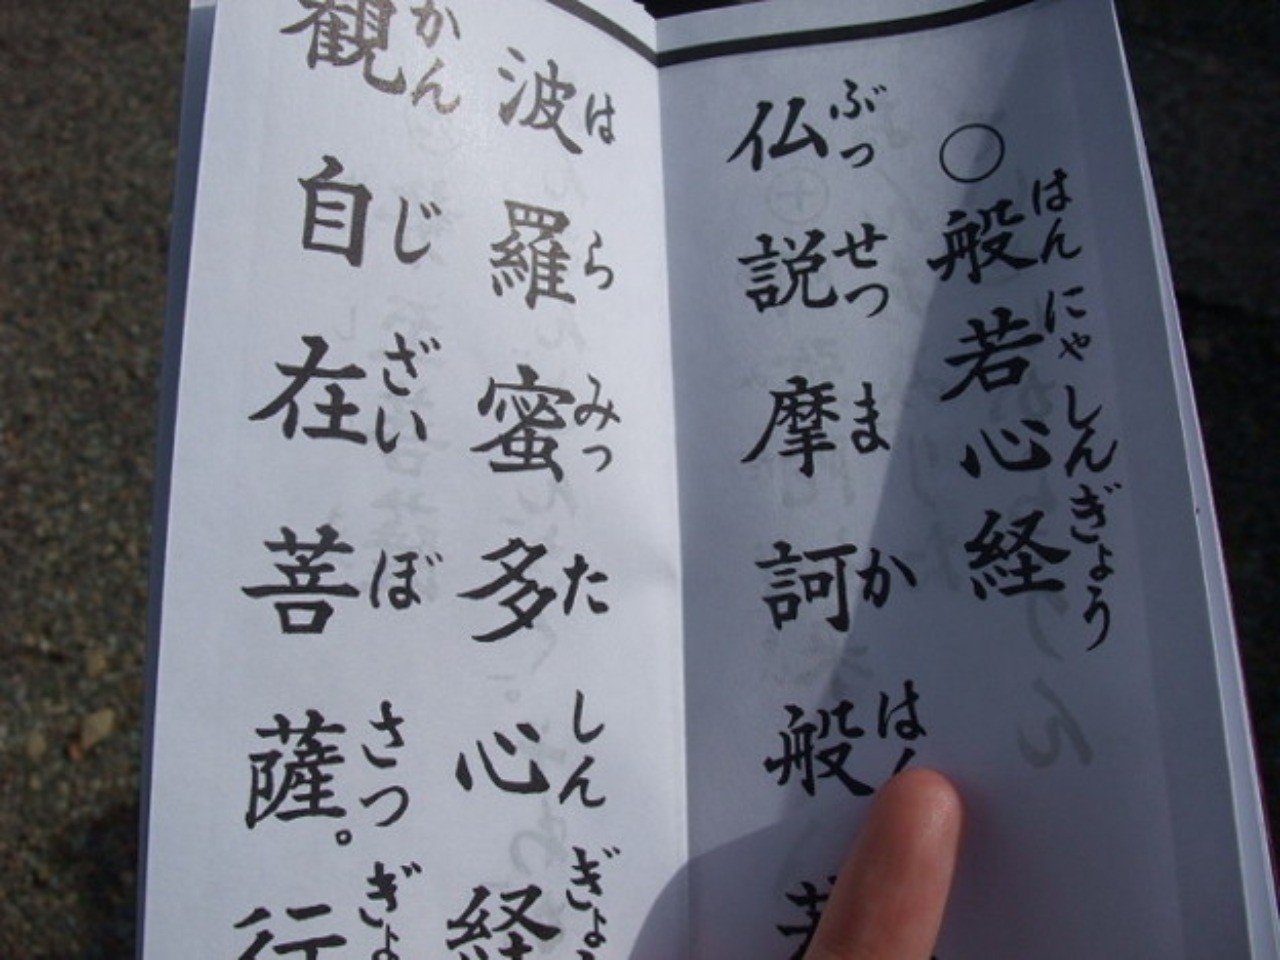 ○般若心経
はんにゃしんぎょう
仏説摩訶般若
ぶっせつまかはん
波羅蜜多心経
はらみったしんぎょ
観自在菩薩。行
かんじざいぼさつぎょ